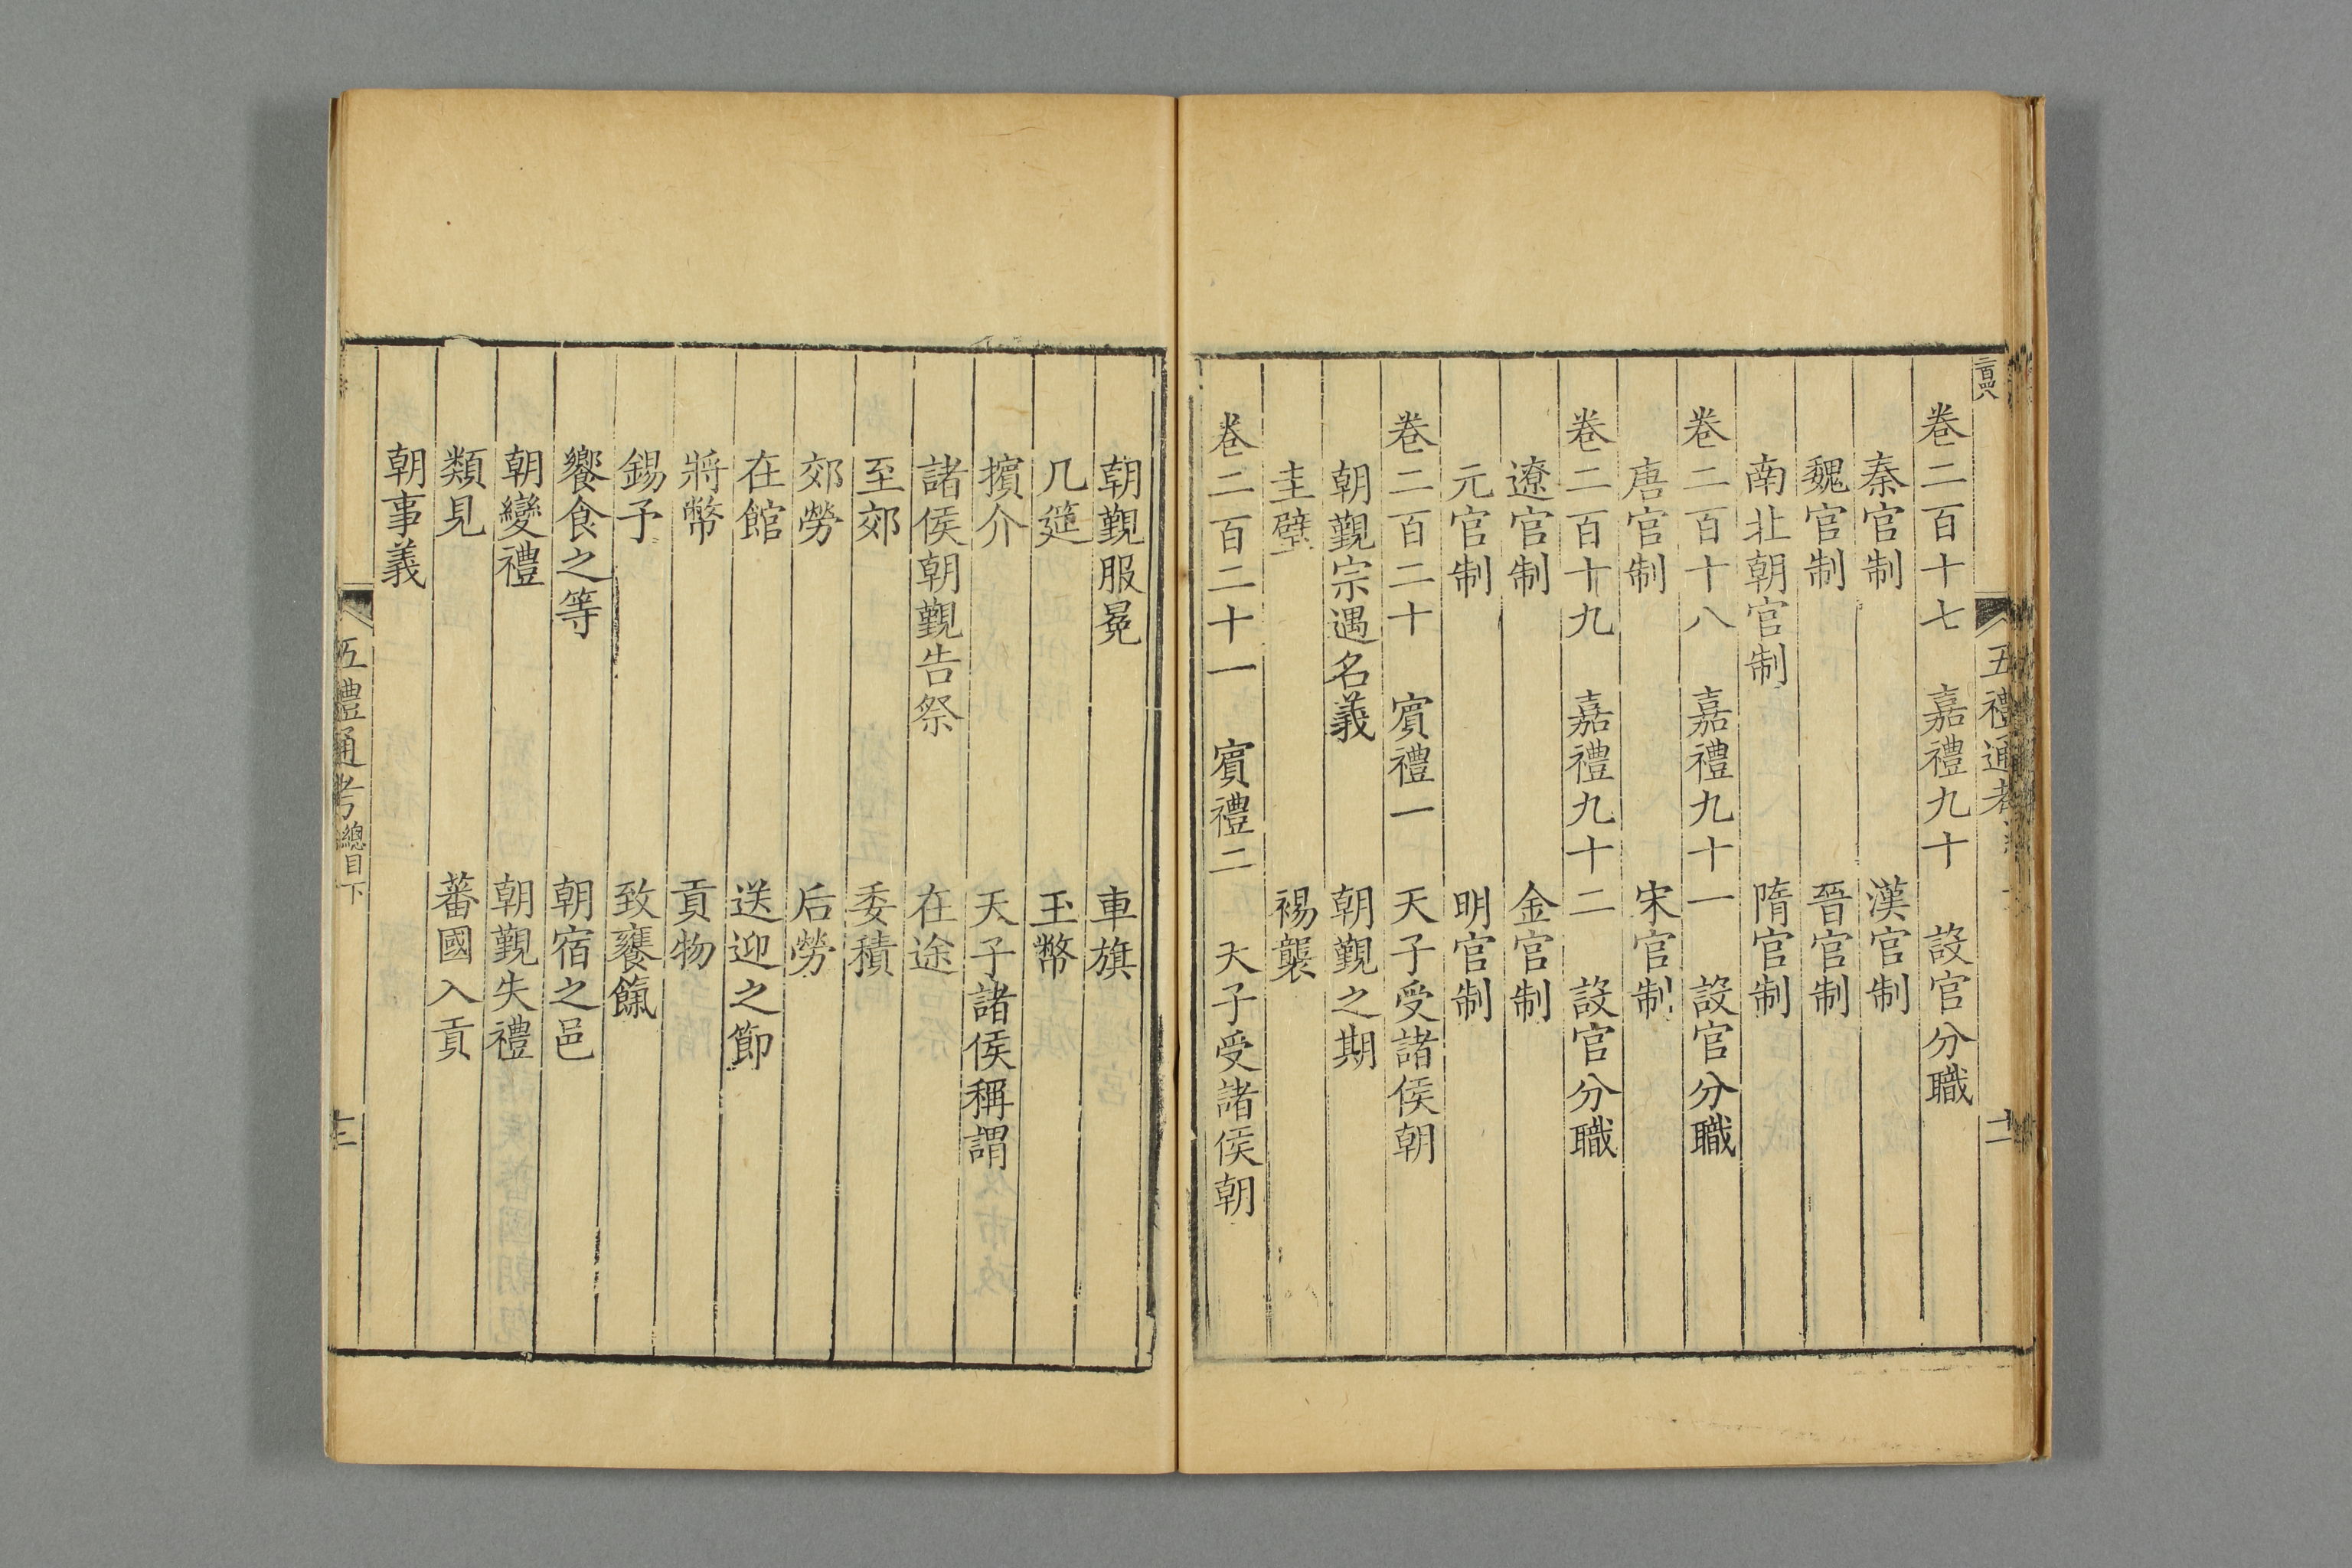 五禮通考
卷二百十七 嘉禮九十 設官分職
秦官制 漢官制
魏官制 晉官制
南北朝官制 隋官制
卷二百十八 嘉禮九十一 設官分職
唐官制 宋官制
卷二百十九 嘉禮九十二 設官分職
遼官制 金官制
元官制 明官制
卷二百二十 賓禮一 天子受諸侯朝
朝覲宗遇名義 朝覲之期
圭璧 裼襲
卷二百二十一 賓禮二 天子受諸侯朝
朝覲服冕 車旗
几筵 玉幣
擯介 天子諸侯稱謂
諸侯朝覲告祭 在途
至郊 委積
郊勞 后勞
在館 送迎之節
將幣 貢物
錫予 致饔餼
饗食之等 朝宿之邑
朝變禮 朝覲失禮
類見 蕃國入貢
朝事義
五禮通考 總目下 十三